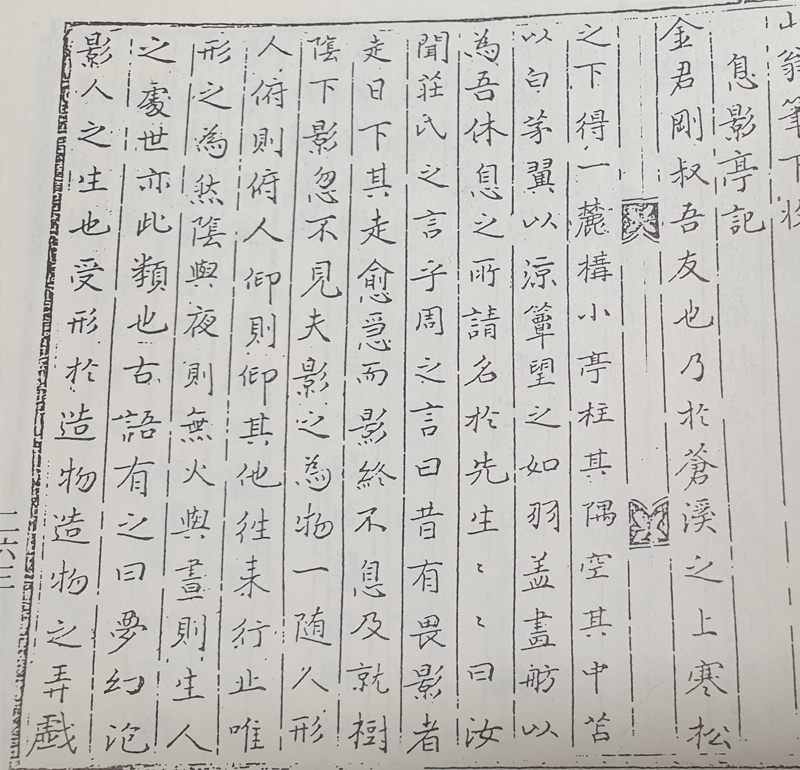 翁筆下
息影亭記
金君剛叔吾友也乃於蒼溪之上寒松
之下得一麓構小亭柱其隅空其中苫
以白茅翼以凉簟望之如羽盖畫舫以
為吾休息之所請名於先生〻〻曰汝
聞莊氏之言乎周之言曰昔有畏影者
走日下其走愈急而影終不息及就樹
陰下影忽不見夫影之為物一随人形
人俯則俯人仰則仰其他徃来行止唯
形之為然陰與夜則無火與晝則生人
之處世亦此類也古語有之曰夢幻泡
影人之生也受形於造物造物之弄戲
二六三